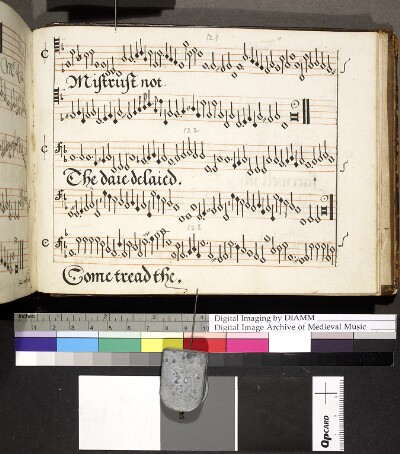 121
Mistrust not
122
The daie delaied.
123
Some tread the.
Inches 1 2 3 4
Digital Imaging by DIAMM
Digital Image Archive of Medieval Music
QPCARD